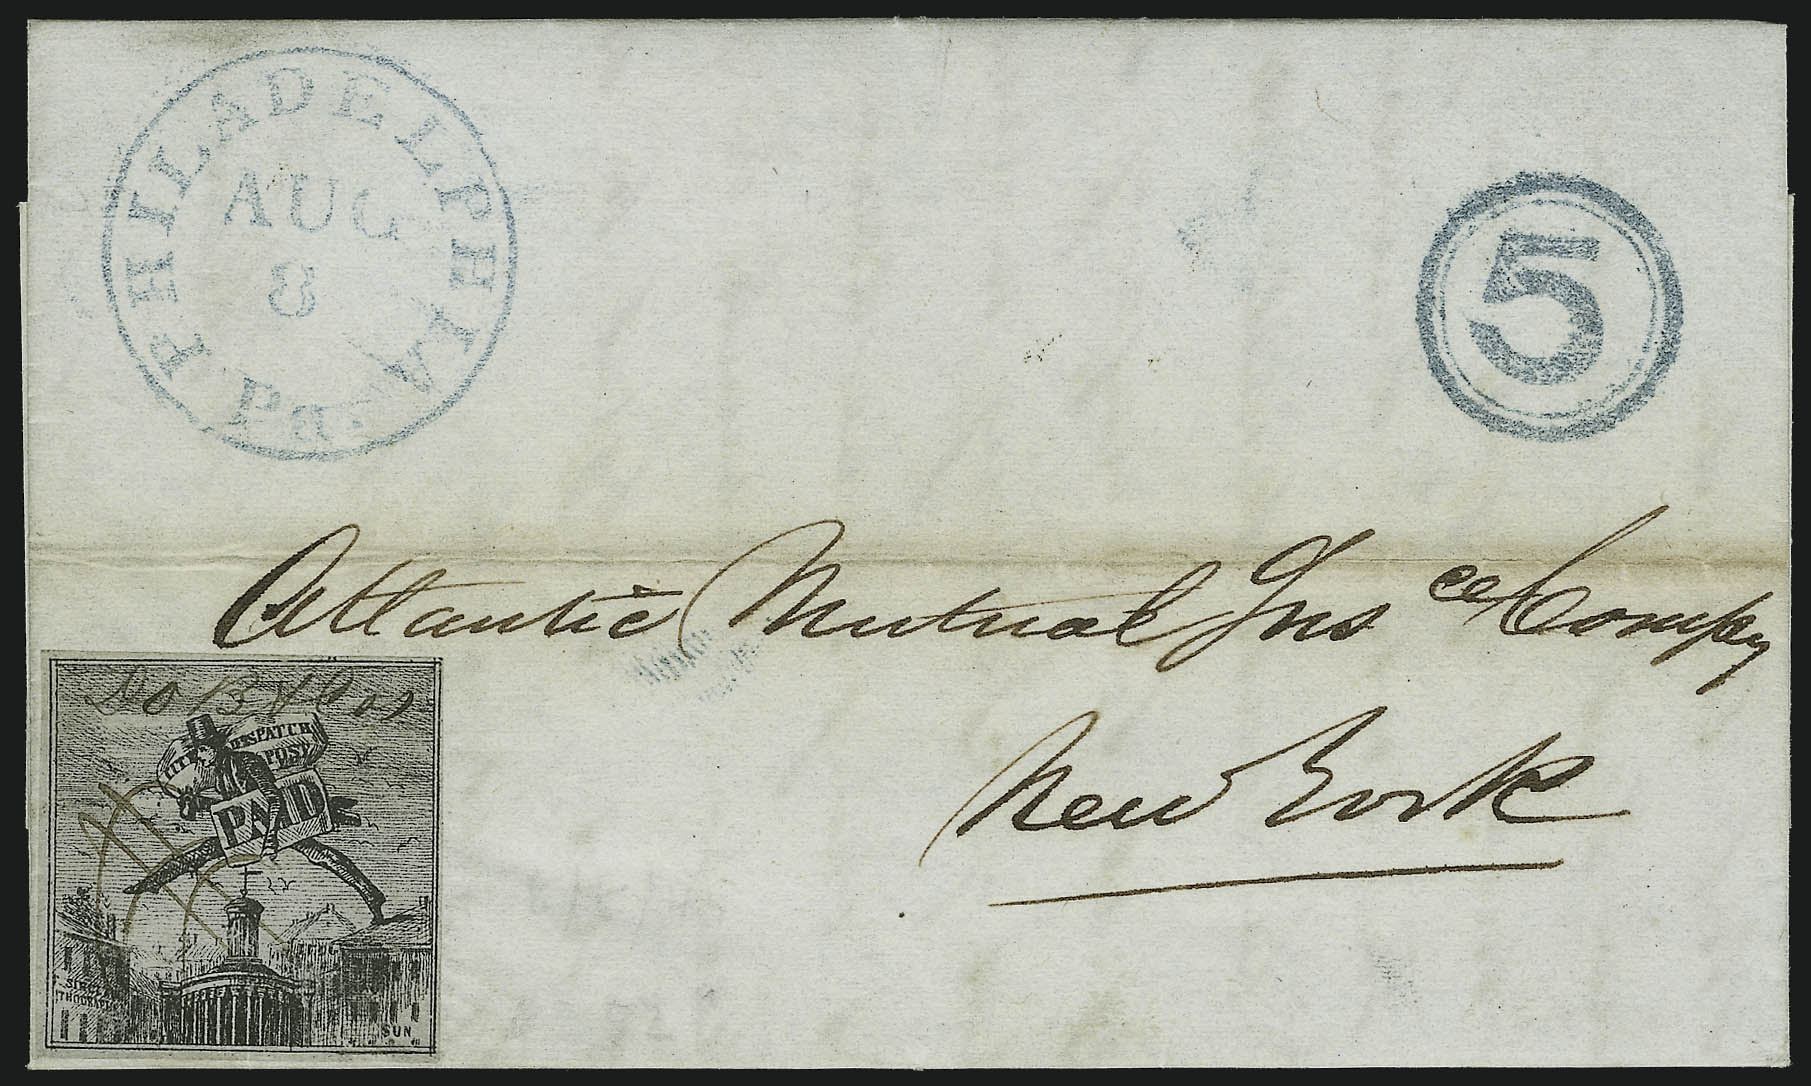 PHILADELPHIA Pa.
AUG
8
5
Atlantic Mutual Insce Compy
New York
DESPATCH
POST
PAID
SUN